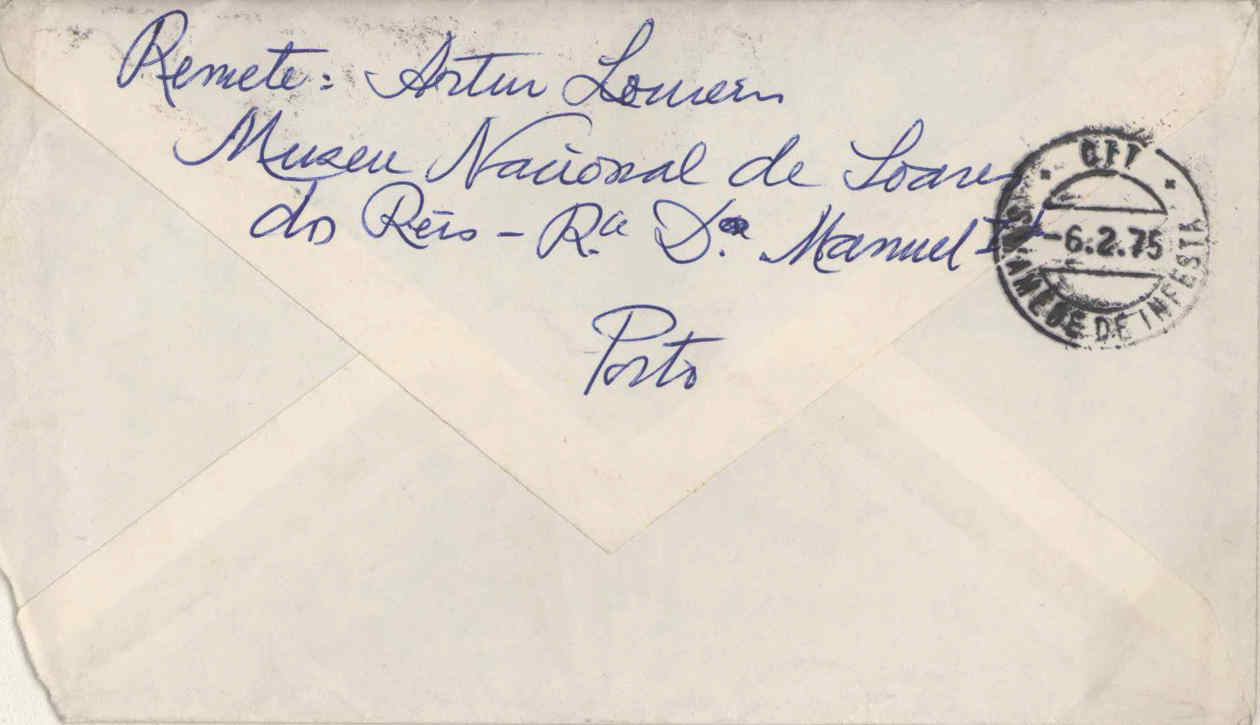 Remete: Artur Loureiro
Museu Nacional de Soares
dos Reis - R.a D. Manuel II
Porto
CTT
-6.2.75
S. MAMEDE DE INFESTA